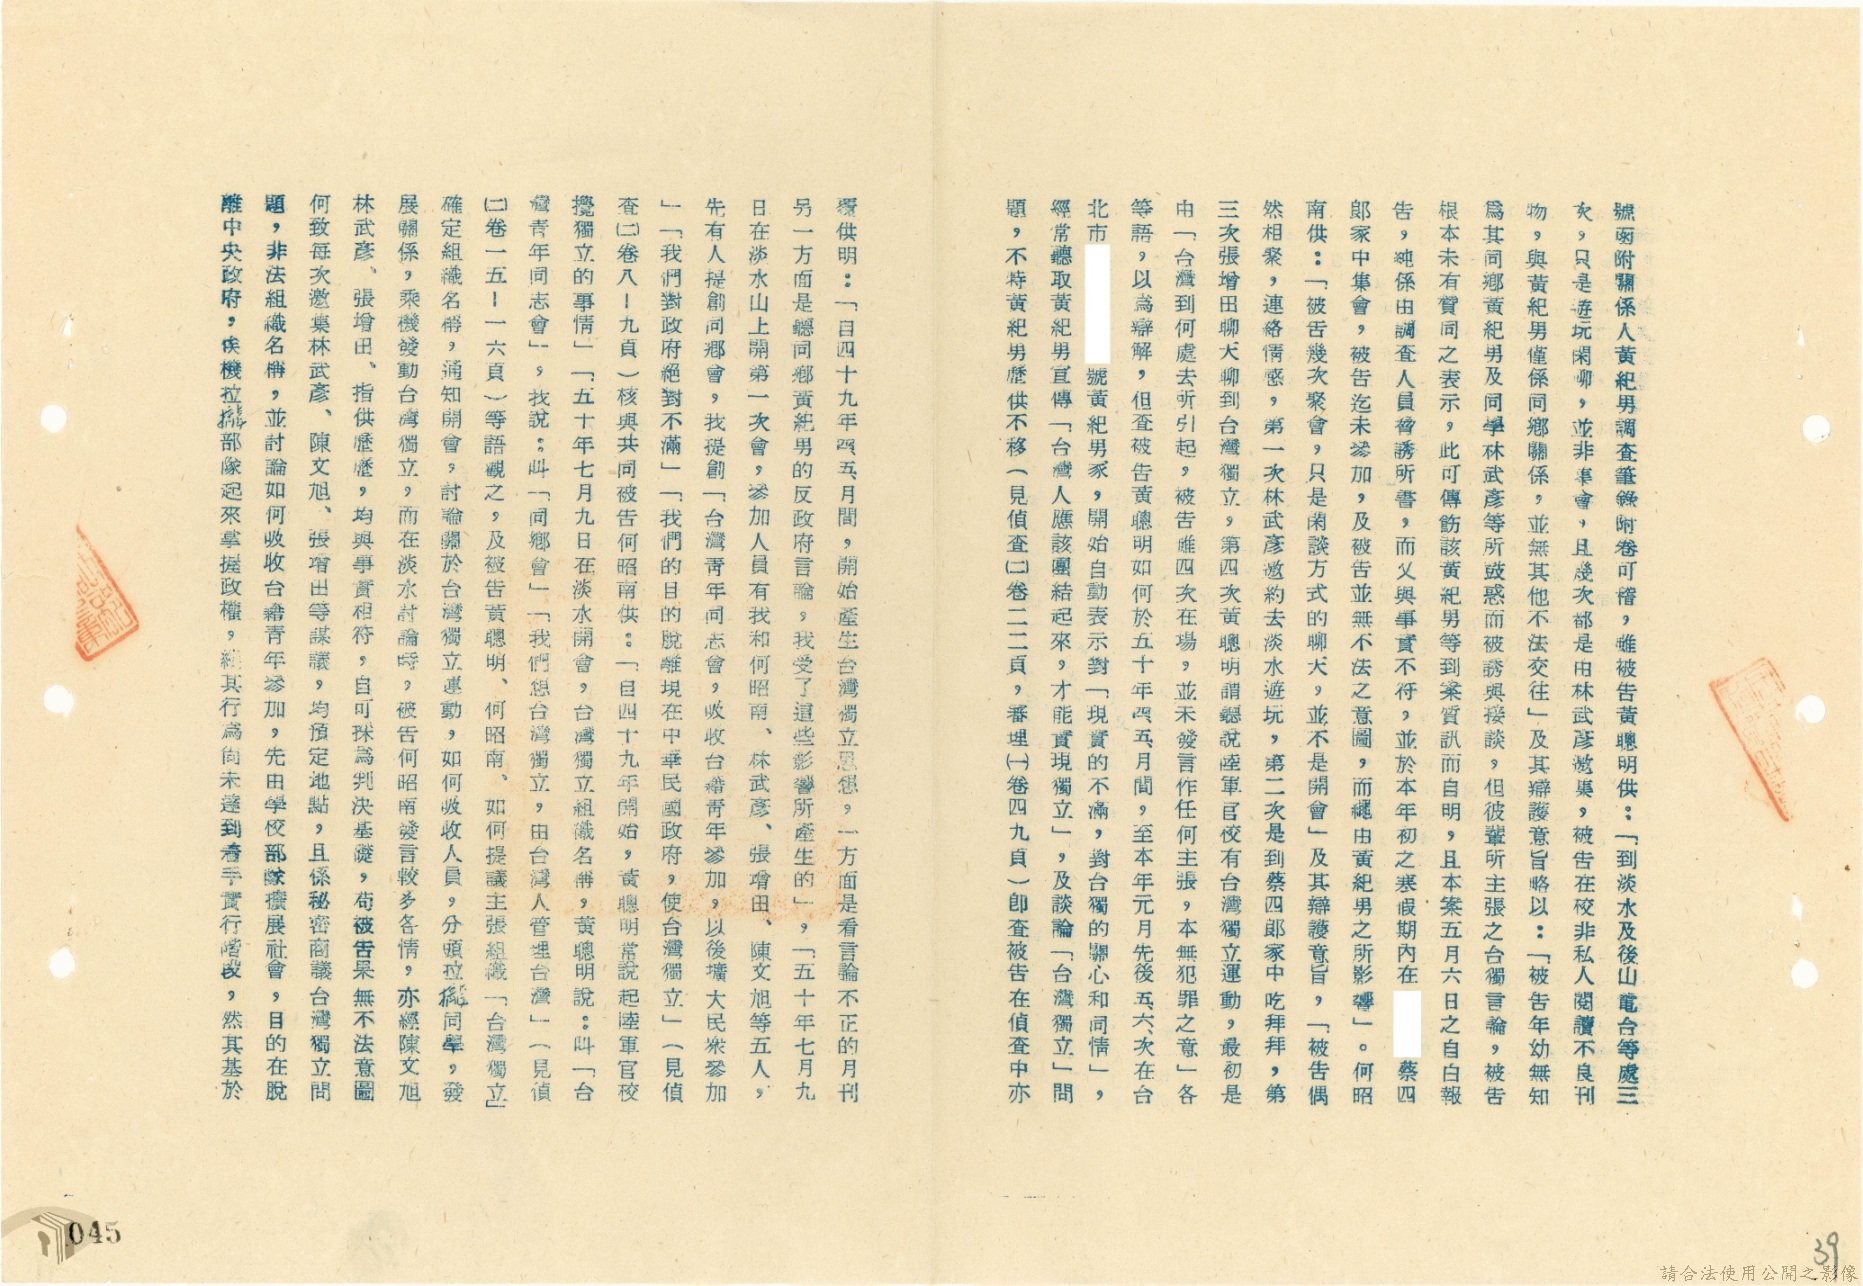 號函附關係人黃紀男調查筆錄附卷可稽，雖被告黃聰明供：「到淡水及後山電台等處三
次，只是遊玩閑聊，並非集會，且幾次都是由林武彥邀集，被告在校非私人閱讀不良刊
物，與黃紀男僅係同鄉關係，並無其他不法交往」及其辯護意旨略以：「被告年幼無知
為其同鄉黃紀男及同學林武彥等所鼓惑而被誘與接談，但彼輩所主張之台獨言論，被告
根本未有贊同之表示，此可傳飭該黃紀男等到案質訊而自明，且本案五月六日之自白報
告，純係由調查人員脅誘所書，而又與事實不符，並於本年初之寒假期內在 蔡四
郎家中集會，被告迄未參加，及被告並無不法之意圖，而纔由黃紀男之所影響」。何昭
南供：「被告幾次聚會，只是閑談方式的聊天，並不是開會」及其辯護意旨，「被告偶
然相聚，連絡情感，第一次林武彥邀約去淡水遊玩，第二次是到蔡四郎家中吃拜拜，第
三次張增田聊天聊到台灣獨立，第四次黃聰明謂聽說陸軍官校有台灣獨立運動，最初是
由「台灣到何處去所引起，被告雖四次在場，並未發言作任何主張，本無犯罪之意」各
等語，以為辯解，但查被告黃聰明如何於五十年四、五、月間，至本年元月先後五、六、次在台
北市 號黃紀男家，開始自動表示對「現實的不滿，對台獨的關心和同情」，
經常聽取黃紀男宣傳「台灣人應該團結起來，才能實現獨立」，及談論「台灣獨立」問
題，不特黃紀男歷供不移（見偵查㈡卷二二頁，審理㈠卷四九頁）卽查被告在偵查中亦
覆供明：「自四十九年四、五、月間，開始產生台灣獨立思想，一方面是看言論不正的月刊
另一方面是聽同鄉黃紀男的反政府言論，我受了這些影響所產生的」，「五十年七月九
日在淡水山上開第一次會，參加人員有我和何昭南、林武彥、張增田、陳文旭等五人，
先有人提創同鄉會，我提創「台灣青年同志會，吸收台籍青年參加，以後壙大民衆參加
」「我們對政府絕對不滿」「我們的目的脫離現在中華民國政府，使台灣獨立」（見偵
查㈡卷八－九頁）核與共同被告何昭南供：「自四十九年開始，黃聰明常說起陸軍官校
攪獨立的事情」「五十年七月九日在淡水開會，台灣獨立組織名稱，黃聰明說：叫「台
灣青年同志會」，我說：叫「同鄉會」「我們想台灣獨立，由台灣人管理台灣」（見偵
㈡卷一五－一六頁）等語觀之，及被告黃聰明、何昭南、如何提議主張組織「台灣獨立」
確定組織名稱，通知開會，討論關於台灣獨立運動，如何吸收人員，分頭拉攏同學，發
展關係，乘機發動台灣獨立，而在淡水討論時，被告何昭南發言較多各情，亦經陳文旭
林武彥、張增田、指供歷歷，均與事實相符，自可採為判決基礎，苟被告果無不法意圖
何致每次邀集林武彥、陳文旭、張增田等謀議，均預定地點，且係秘密商議台灣獨立問
題，非法組織名稱，並討論如何吸收台籍青年參加，先由學校部隊擴展社會，目的在脫
離中央政府，俟機拉攏部隊起來掌握政權，縱其行為尚未達到着手實行階段，然其基於
045
39
請合法使用公開之影像